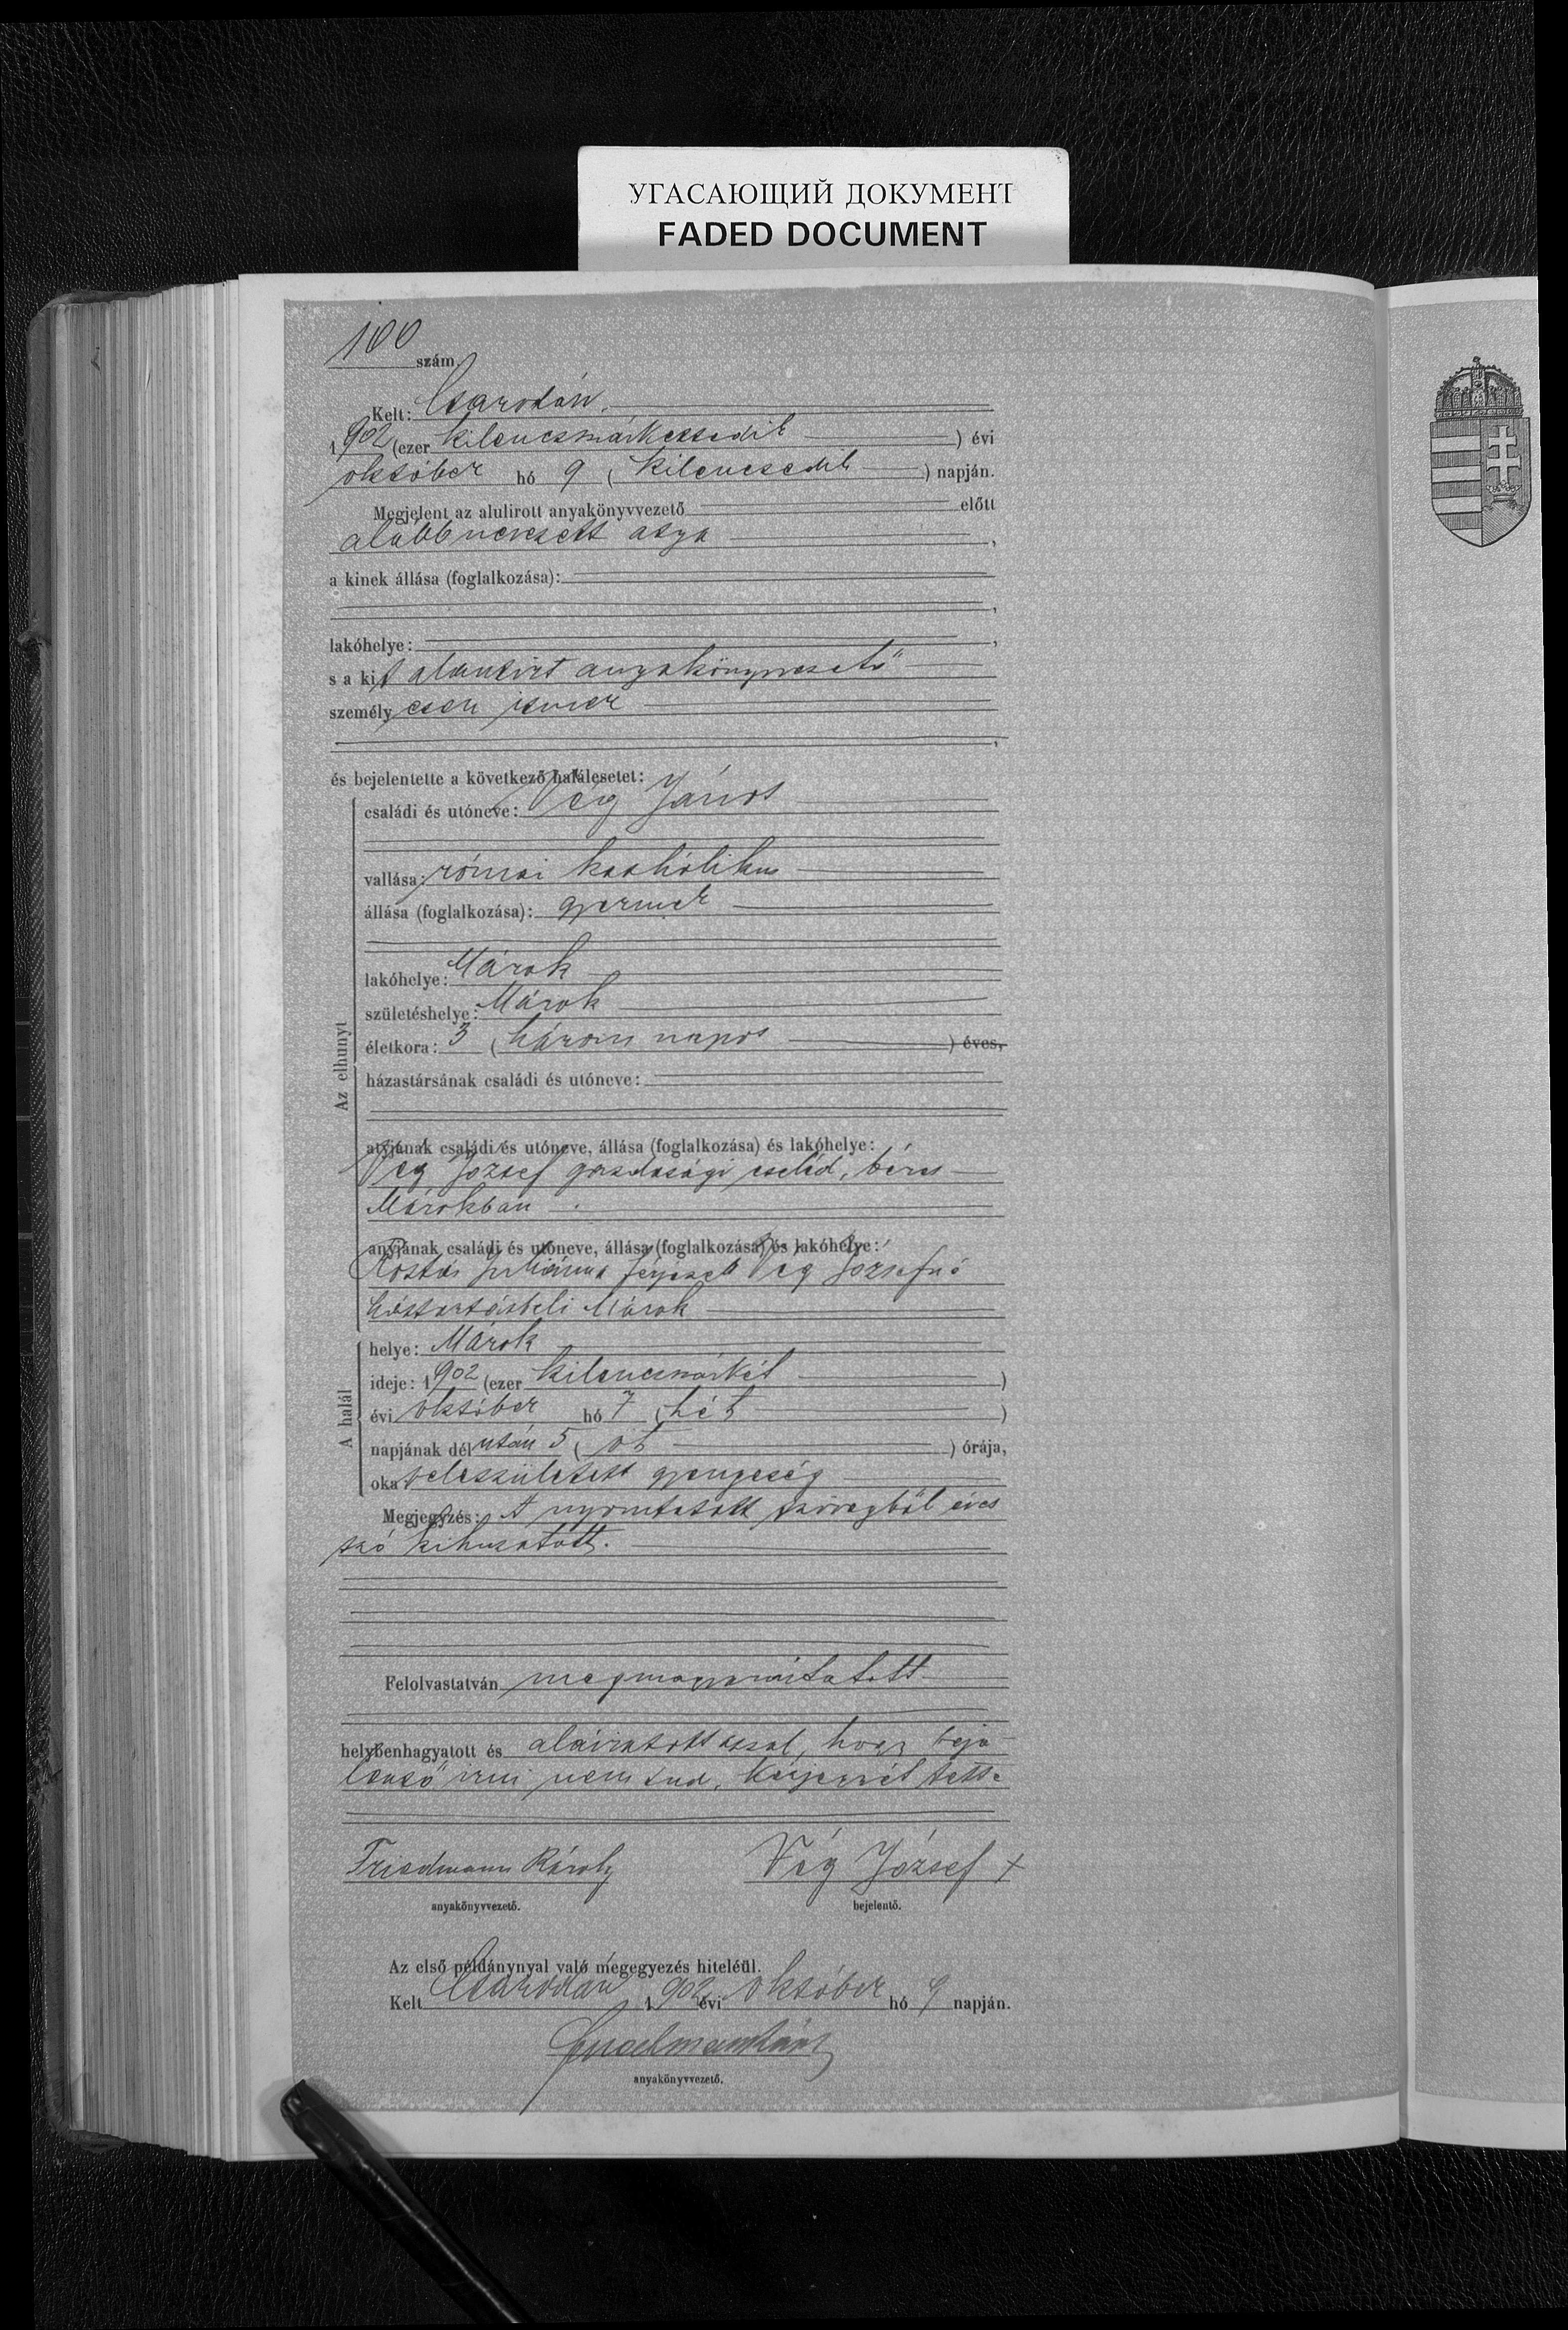 УГАСАЮЩИЙ ДОКУМЕНТ
FADED DOCUMENT
100 szám.
Kelt: Csarodán.
1902 (ezer kilencszázkettedik ) évi
október hó 9 ( kilencedik ) napján.
Megjelent az alulirott anyakönyvvezető előtt
alább nevezett atya ,
a kinek állása (foglalkozása):
,
lakóhelye: ,
s a kit alantirt anyakönyvvezető
személyesen ismer
,
és bejelentette a következő halálesetet:
Az elhunyt
családi és utóneve: Vég János
vallása: római katholikus
állása (foglalkozása): gyermek
lakóhelye: Márok
születéshelye: Márok
életkora: 3 ( három napos ) éves,
házastársának családi és utóneve:
atyjának családi és utóneve, állása (foglalkozása) és lakóhelye:
Vég József gazdasági cseléd, béres
Márokban
anyjának családi és utóneve, állása (foglalkozása) és lakóhelye:
Rostás Juliánna férjezett Vég Józsefné
háztartásbeli Márok
A halál
helye: Márok
ideje: 1902 (ezer kilencszázkét )
évi október hó 7 ( hét )
napjának délután 5 ( öt ) órája,
oka veleszületett gyengeség
Megjegyzés: A nyomtatott szövegből éves
szó kihuzatott.
Felolvastatván megmagyaráztatott
helybenhagyatott és aláiratott azzal, hogy beje-
lentő irni nem tud, kézjegyét tette
Friedmann Károly Vég József +
anyakönyvvezető. bejelentő.
Az első példánynyal való megegyezés hiteléül.
Kelt Csarodán 1902 évi október hó 9 napján.
anyakönyvvezető.